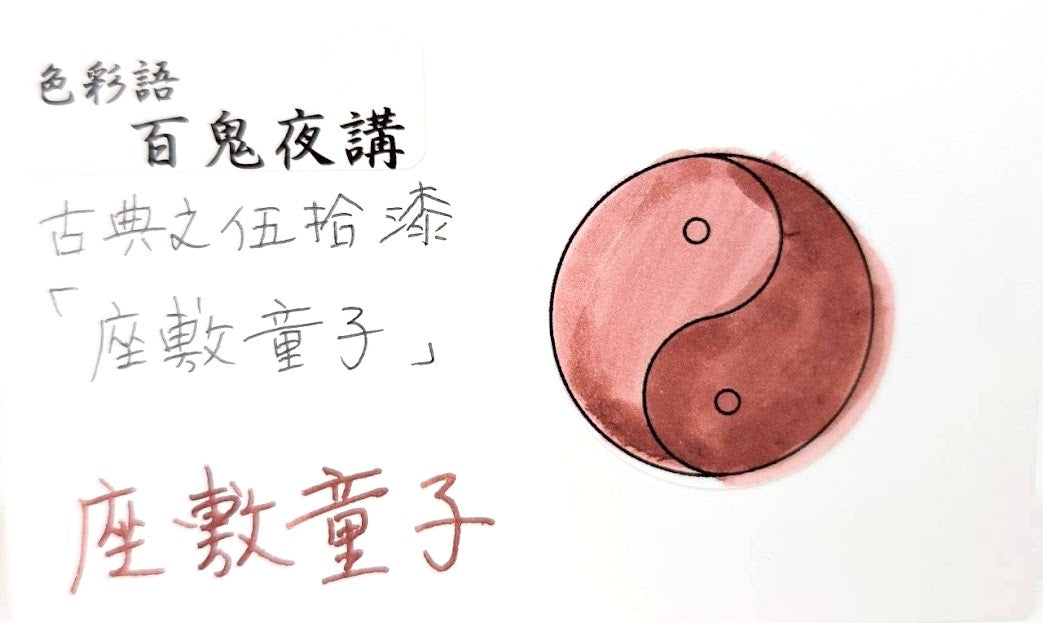 色彩語
百鬼夜講
古典之伍拾漆
「座敷童子」
座敷童子